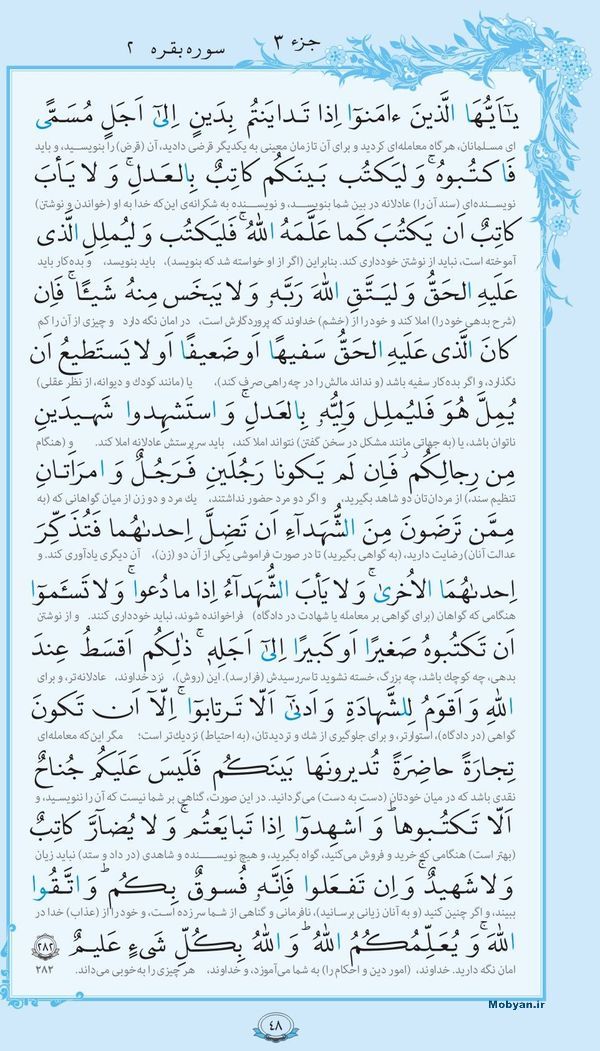 جزء ۳
سوره بقره ۲
يٰٓاَيُّهَا الَّذينَ ءامَنوٓا اِذا تَدايَنتُم بِدَينٍ اِلىٰٓ اَجَلٍ مُسَمًّى
ای مسلمانان، هرگاه معامله‌ای کردید و برای آن تا زمان معینی به یکدیگر قرضی دادید، آن (قرض) را بنویسید، و باید
فَاكتُبوهُ ۚ وَ ليَكتُب بَينَكُم كاتِبٌ بِالعَدلِ ۚ وَ لا يَأبَ
نویسنده‌ای (سند آن را) عادلانه در بین شما بنویسد، و نویسنده به شکرانه‌ی این‌که خدا به او (خواندن و نوشتن)
كاتِبٌ اَن يَكتُبَ كَما عَلَّمَهُ اللهُ ۚ فَليَكتُب وَ ليُملِلِ الَّذى
آموخته است، نباید از نوشتن خودداری کند. بنابراین (اگر از او خواسته شد که بنویسد)، باید بنویسد، و بده‌کار باید
عَلَيهِ الحَقُّ وَ ليَتَّقِ اللهَ رَبَّه‏ وَ لا يَبخَس مِنهُ شَيـًٔا ۚ فَاِن
(شرح بدهی خود را) املا کند و خود را از (خشم) خداوند که پروردگارش است، در امان نگه دارد و چیزی از آن را کم
كانَ الَّذى عَلَيهِ الحَقُّ سَفيهًا اَو ضَعيفًا اَو لا يَستَطيعُ اَن
نگذارد، و اگر بده‌کار سفیه باشد (و نداند مالش را در چه راهی صرف کند)، یا (مانند کودک و دیوانه، از نظر عقلی)
يُمِلَّ هُوَ فَليُملِل وَلِيُّهُ‏ بِالعَدلِ ۚ وَ استَشهِدوا شَهيدَينِ
ناتوان باشد، یا (به جهاتی مانند مشکل در سخن گفتن) نتواند املا کند، باید سرپرستش عادلانه املا کند. و (هنگام
مِن رِجالِكُم ۖ فَاِن لَم يَكونا رَجُلَينِ فَرَجُلٌ وَ امرَاَتانِ
تنظیم سند،) از مردان‌تان دو شاهد بگیرید، و اگر دو مرد حضور نداشتند، یک مرد و دو زن از میان گواهانی که (به
مِمَّن تَرضَونَ مِنَ الشُّهَدآءِ اَن تَضِلَّ اِحدىٰهُما فَتُذَكِّرَ
عدالت آنان) رضایت دارید، (به گواهی بگیرید) تا در صورت فراموشی یکی از آن دو (زن)، آن دیگری یادآوری کند. و
اِحدىٰهُمَا الاُخرىٰ ۚ وَ لا يَأبَ الشُّهَدآءُ اِذا ما دُعوا ۚ وَ لا تَسـَٔموٓا
هنگامی که گواهان (برای گواهی بر معامله یا شهادت در دادگاه) فراخوانده شوند، نباید خودداری کنند. و از نوشتن
اَن تَكتُبوهُ صَغيرًا اَو كَبيرًا اِلىٰٓ اَجَلِه‏ ۚ ذٰلِكُم اَقسَطُ عِندَ
بدهی، چه کوچک باشد، چه بزرگ، خسته نشوید تا سررسیدش (فرا رسد). این (روش)، نزد خداوند، عادلانه‌تر، و برای
اللهِ وَ اَقوَمُ لِلشَّهادَةِ وَ اَدنىٰٓ اَلّا تَرتابوٓا ۖ اِلّآ اَن تَكونَ
گواهی (در دادگاه)، استوارتر، و برای جلوگیری از شک و تردیدتان، (به احتیاط) نزدیک‌تر است؛ مگر این‌که معامله‌ای
تِجارَةً حاضِرَةً تُديرونَها بَينَكُم فَلَيسَ عَلَيكُم جُناحٌ
نقدی باشد که در میان خودتان (دست به دست) می‌گردانید. در این صورت، گناهی بر شما نیست که آن را ننویسید، و
اَلّا تَكتُبوها ۗ وَ اَشهِدوٓا اِذا تَبايَعتُم ۚ وَ لا يُضآرَّ كاتِبٌ
(بهتر است) هنگامی که خرید و فروش می‌کنید، گواه بگیرید، و هیچ نویسنده و شاهدی (در داد و ستد) نباید زیان
وَ لا شَهيدٌ ۚ وَ اِن تَفعَلوا فَاِنَّهُ‏ فُسوقٌ بِكُم ۗ وَ اتَّقُوا
ببیند، و اگر چنین کنید (و به آنان زیانی برسانید)، نافرمانی و گناهی از شما سر زده است، و خود را از (عذاب) خدا در
اللهَ ۖ وَ يُعَلِّمُكُمُ اللهُ ۗ وَ اللهُ بِكُلِّ شَىءٍ عَليمٌ ۲۸۲
امان نگه دارید. خداوند، (امور دین و احکام را) به شما می‌آموزد، و خداوند، هر چیزی را به‌خوبی می‌داند. ۲۸۲
Mobyan.ir
۴۸